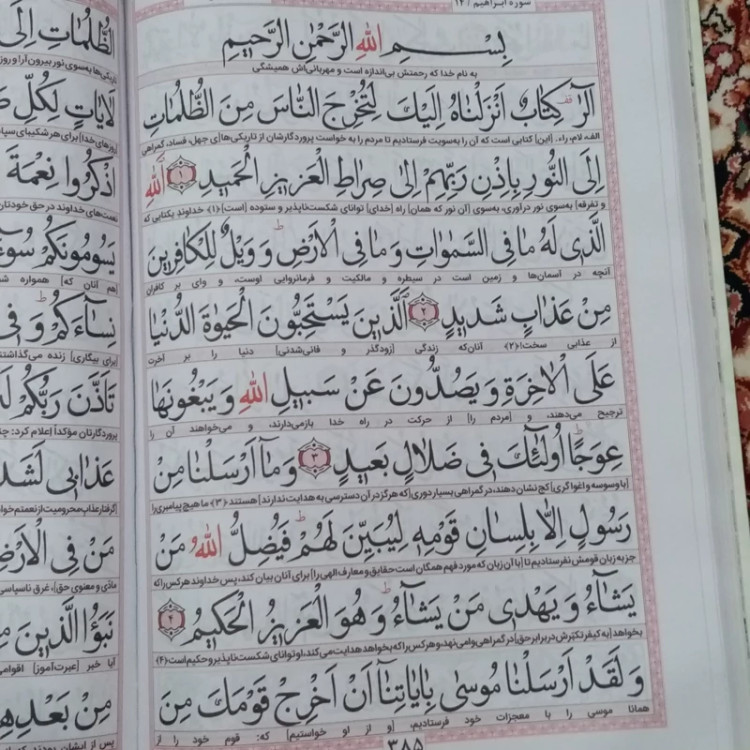 سوره ابراهیم / ۱۴
بِسْمِ اللهِ الرَّحْمٰنِ الرَّحیمِ
به نام خدا که رحمتش بی‌اندازه است و مهربانی‌اش همیشگی
الٓرٰ قف کِتابٌ اَنْزَلْناهُ اِلَیْکَ لِتُخْرِجَ النّاسَ مِنَ الظُّلُماتِ
الف، لام، راء. [این] کتابی است که آن را به‌سویت فرستادیم تا مردم را به خواست پروردگارشان از تاریکی‌ها[ی جهل، فساد، گمراهی
اِلَی النُّورِ بِاِذْنِ رَبِّهِمْ اِلیٰ صِراطِ الْعَزیزِ الْحَمیدِ ﴿۱﴾ اَللهِ
و تفرقه] به‌سوی نور درآوری، به‌سوی [آن نور که همان] راه [خدای] توانای شکست‌ناپذیر و ستوده [است] ﴿۱﴾ خداوند یکتایی که
الَّذی لَهُ ما فِی السَّمٰواتِ وَ ما فِی الْاَرْضِ ط وَ وَیْلٌ لِلْکافِرینَ
آنچه در آسمان‌ها و زمین است در سیطره و مالکیت و فرمانروایی اوست، و وای بر کافران
مِنْ عَذابٍ شَدیدٍ ﴿۲﴾ اَلَّذینَ یَسْتَحِبُّونَ الْحَیٰوةَ الدُّنْیا
از عذابی سخت! ﴿۲﴾ آنان‌که زندگی [زودگذر و فانی‌شدنی] دنیا را بر آخرت
عَلَی الْاٰخِرَةِ وَ یَصُدُّونَ عَنْ سَبیلِ اللهِ وَ یَبْغُونَها
ترجیح می‌دهند، و [مردم را] از حرکت در راه خدا بازمی‌دارند، و می‌خواهند آن را
عِوَجًا ط اُولٰئِکَ فی ضَلالٍ بَعیدٍ ﴿۳﴾ وَ ما اَرْسَلْنا مِنْ
[با وسوسه و اغواگری] کج نشان دهند، در گمراهی بسیار دوری [که هرگز در آن دسترسی به هدایت ندارند] هستند ﴿۳﴾ ما هیچ پیامبری را
رَسُولٍ اِلّا بِلِسانِ قَوْمِهِ لِیُبَیِّنَ لَهُمْ ط فَیُضِلُّ اللهُ مَنْ
جز به زبان قومش نفرستادیم تا [با آن زبان که مورد فهم همگان است حقایق و معارف الهی را] برای آنان بیان کند، پس خداوند هرکس را که
یَشاءُ وَ یَهْدی مَنْ یَشاءُ ط وَ هُوَ الْعَزیزُ الْحَکیمُ ﴿۴﴾
بخواهد [به کیفر تکبّرش در برابر حق] در گمراهی وا می‌نهد، و هرکس را که بخواهد هدایت می‌کند، او توانای شکست‌ناپذیر و حکیم است ﴿۴﴾
وَ لَقَدْ اَرْسَلْنا مُوسیٰ بِاٰیاتِنا اَنْ اَخْرِجْ قَوْمَکَ مِنَ
همانا موسی را با معجزات خود فرستادیم، [و از او خواستیم] که: قوم خود را از
۳۸۵
الظُّلُماتِ اِلَی
تاریکی‌ها به‌سوی نور بیرون آر! و روز
لَاٰیاتٍ لِکُلِّ
[روزهای خدا] برای هر شکیبای
اذْکُرُوا نِعْمَةَ
نعمت‌های خداوند در حق خودتان
یَسُومُونَکُمْ سُوءَ
هم آنان که] همواره
نِساءَکُمْ ط وَ فی
[برای بیگاری] زنده می‌گذاشتند
تَاَذَّنَ رَبُّکُمْ
پروردگارتان مؤکداً اعلام کرد:
عَذابی لَشَدیدٌ
[گرفتار عذاب محرومیت از نعمتم
مَنْ فِی الْاَرْضِ
مادّی و معنوی حق]، غرق ناسپاسی
نَبَؤُا الَّذینَ مِنْ
آیا خبر [عبرت‌آموز] اقوامی
مِنْ بَعْدِهِمْ